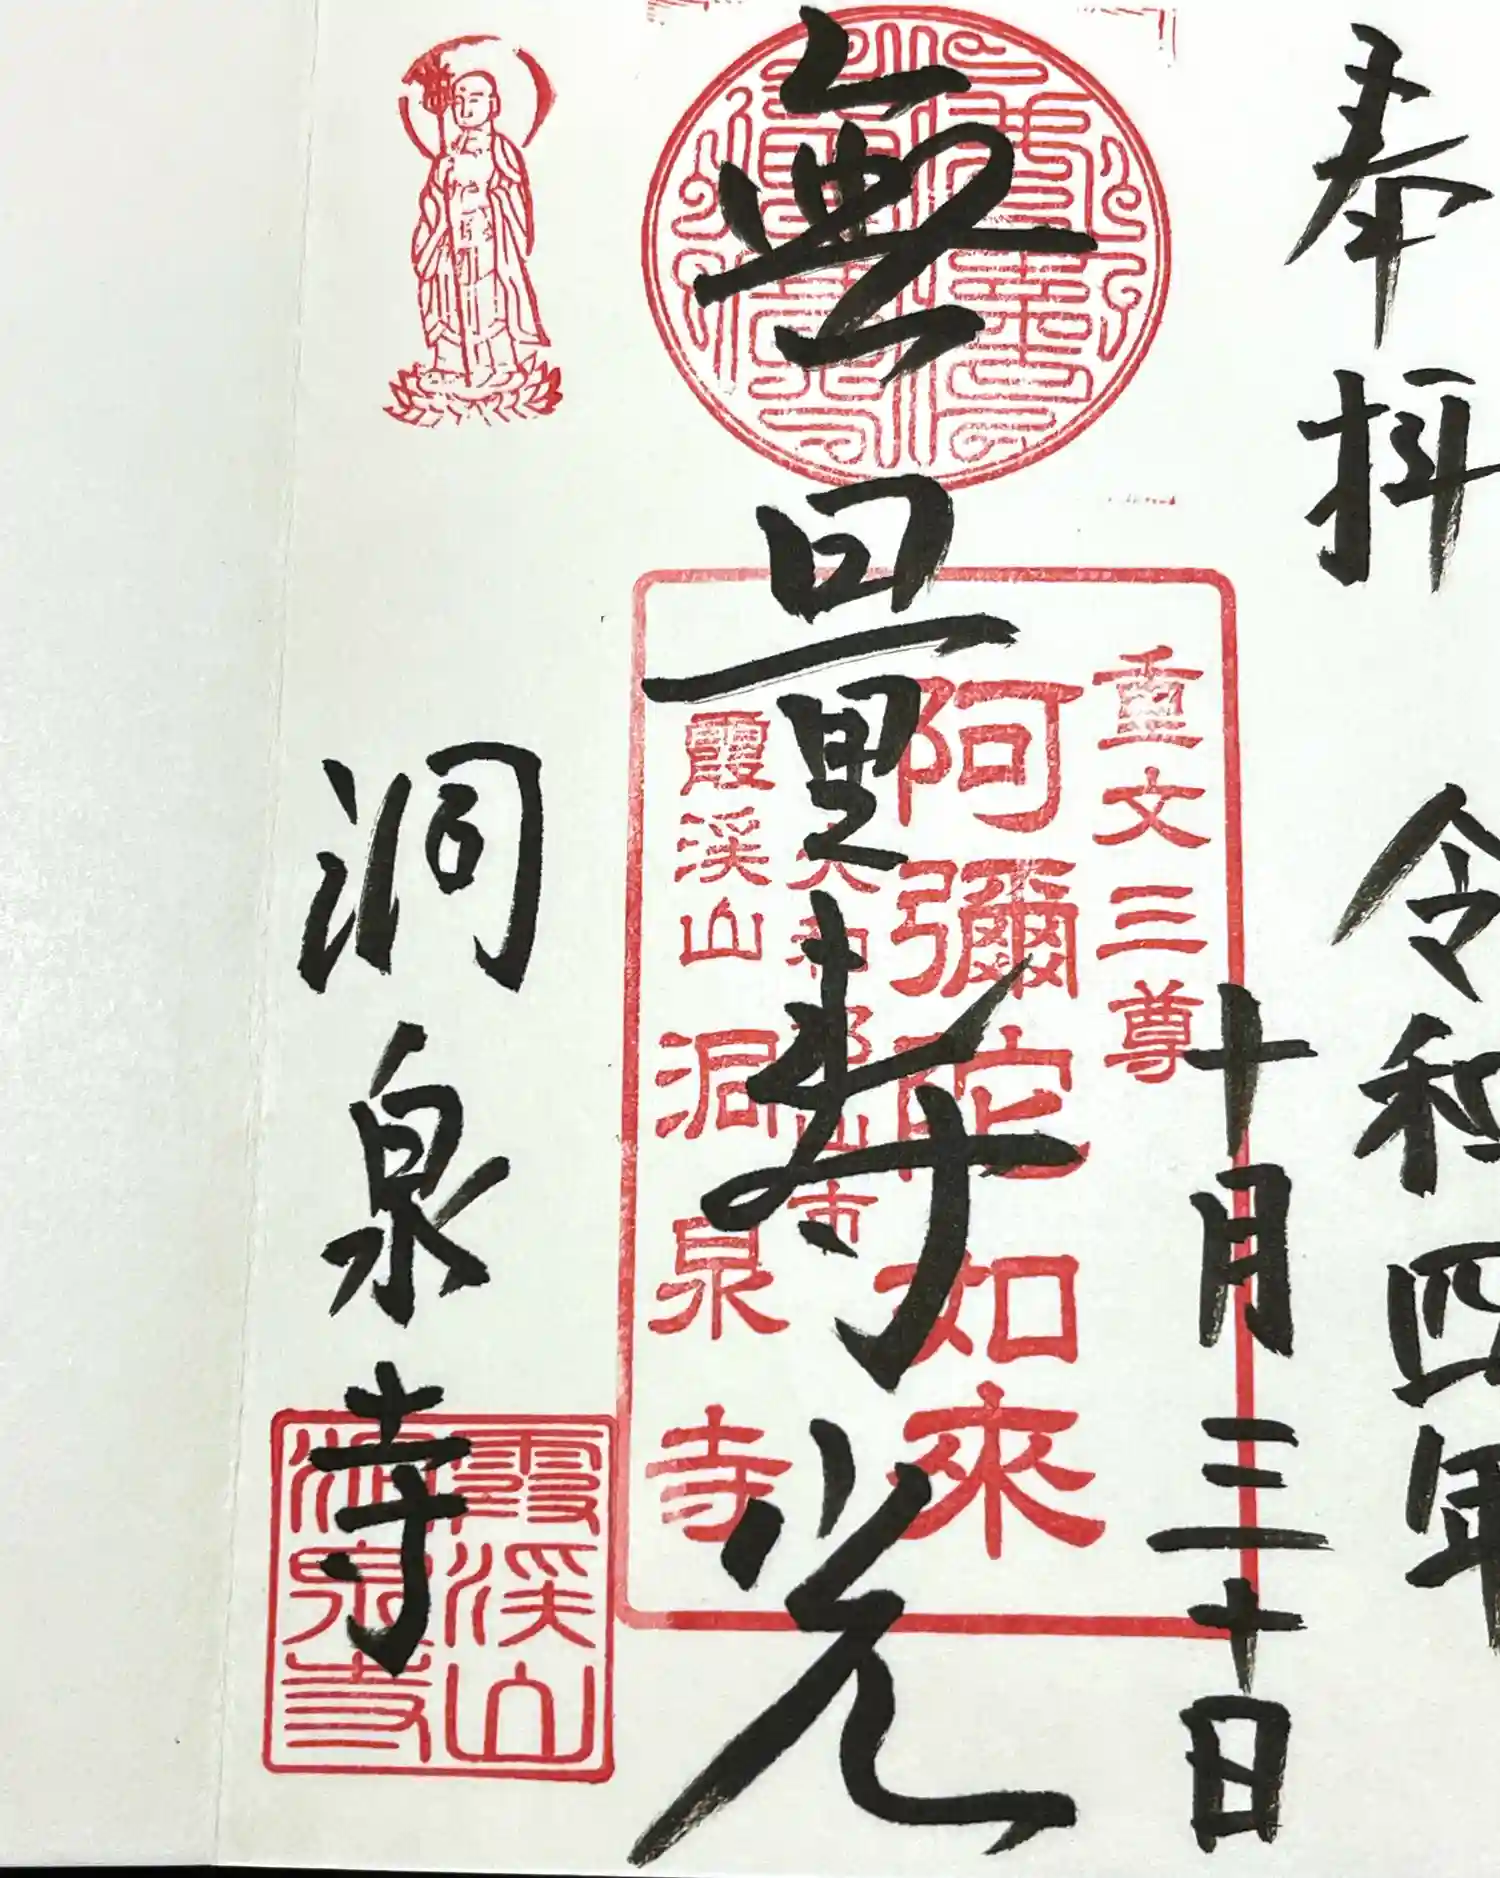 奉拝
令和四年
十月三十日
無量寿光
重文三尊
阿彌陀如來
大和郡山市
霞渓山 洞泉寺
洞泉寺
霞渓山
洞泉寺